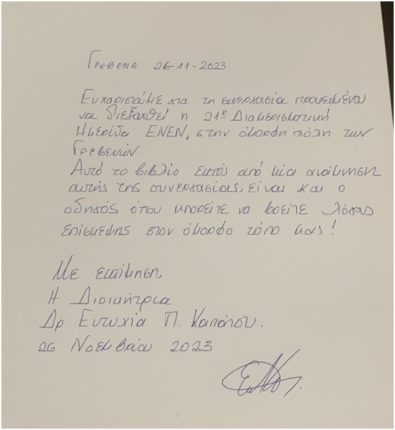 Γρεβενά 26-11-2023
Ευχαριστούμε για τη συνεργασία προκειμένου
να διεξαχθεί η 21η Διαμερισματική
Ημερίδα ΕΝΕΝ, στην όμορφη πόλη των
Γρεβενών.
Αυτό το βιβλίο εκτός από μία ανάμνηση
αυτής της συνεργασίας, είναι και ο
οδηγός όπου μπορείτε να βρείτε λόγους
επίσκεψης στον όμορφο τόπο μας!
Με εκτίμηση
Η Διοικήτρια
Δρ. Ευτυχία Π.
26 Νοεμβρίου 2023